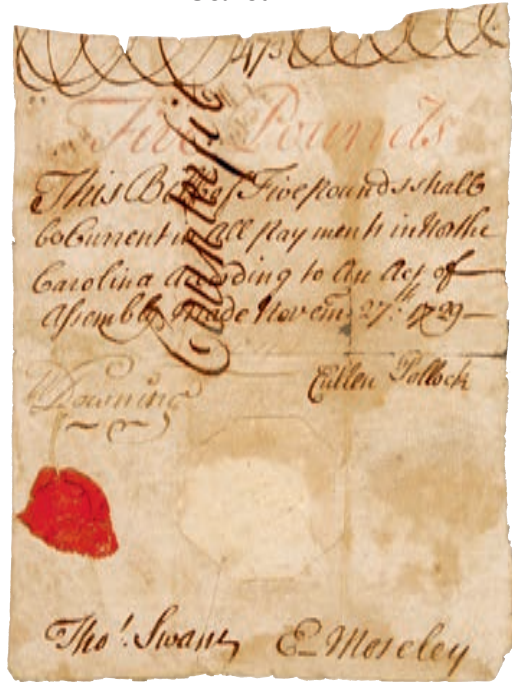 473
Five Pounds
This Bill of Five pounds shall
be Current in All Payments in North
Carolina According to An Act of
Assembly Made Novem. 27th: 1729
Counterfit
Downing
Cullen Pollock
Tho! Swann
E Moseley